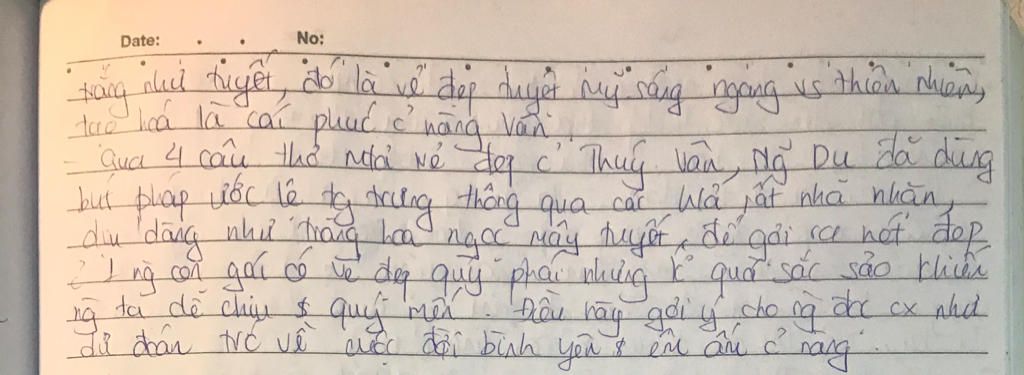 Date: . . No:
trắng như tuyết, đó là vẻ đẹp tuyệt mỹ sáng ngang vs thiên nhiên,
tạo hoá là cái phúc c̉ nàng Vân.
- Qua 4 câu thơ miêu vẻ đẹp c̉ Thuý Vân, Ng̃ Du đã dùng
bút pháp ước lệ tg trưng thông qua các h/ả rất nhã nhặn,
dịu dàng như trăng hoa ngọc mây tuyết, để gợi ra nét đẹp
c̉ 1 ng̀ con gái có vẻ đẹp quý phái nhưng k quá sắc sảo khiến
ng̀ ta dễ chịu & quý mến. Điều này gợi ý cho ng̀ đọc cx như
dự đoán trc về cuộc đời bình yên & êm ấm c̉ nàng.